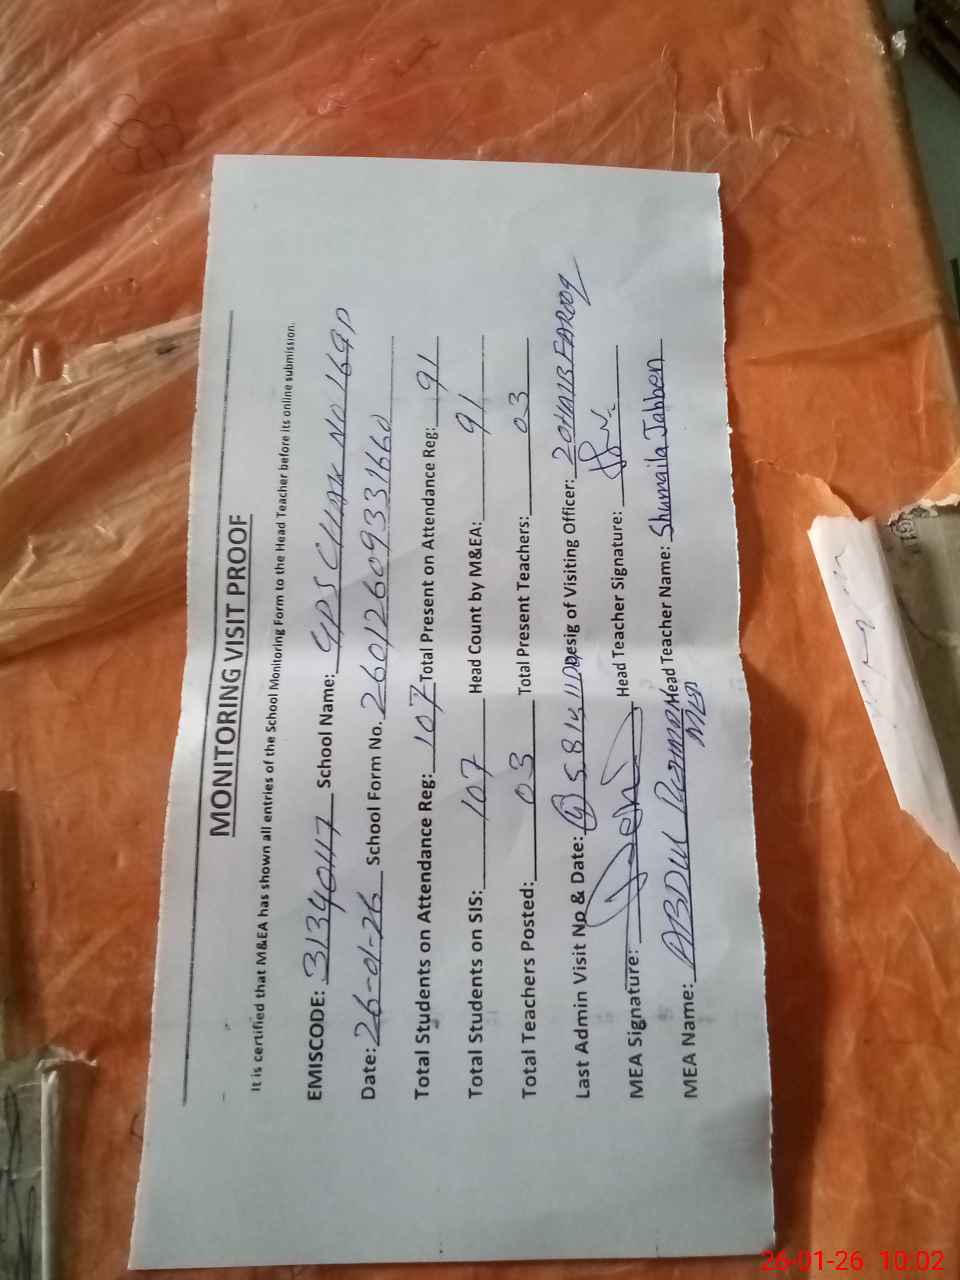 MONITORING VISIT PROOF
It is certified that M&EA has shown all entries of the School Monitoring Form to the Head Teacher before its online submission.
EMISCODE: 31340117 School Name: GPS CHAK NO 169P
Date: 26-01-26 School Form No. 26012609331660
Total Students on Attendance Reg: 107 Total Present on Attendance Reg: 91
Total Students on SIS: 107 Head Count by M&EA: 91
Total Teachers Posted: 03 Total Present Teachers: 03
Last Admin Visit No & Date: Desig of Visiting Officer: ZOHAIB FAROOQ
MEA Signature: Head Teacher Signature:
MEA Name: ABDUL REHMAN Head Teacher Name: Shumaila Jabben
MEA
26-01-26 10:02